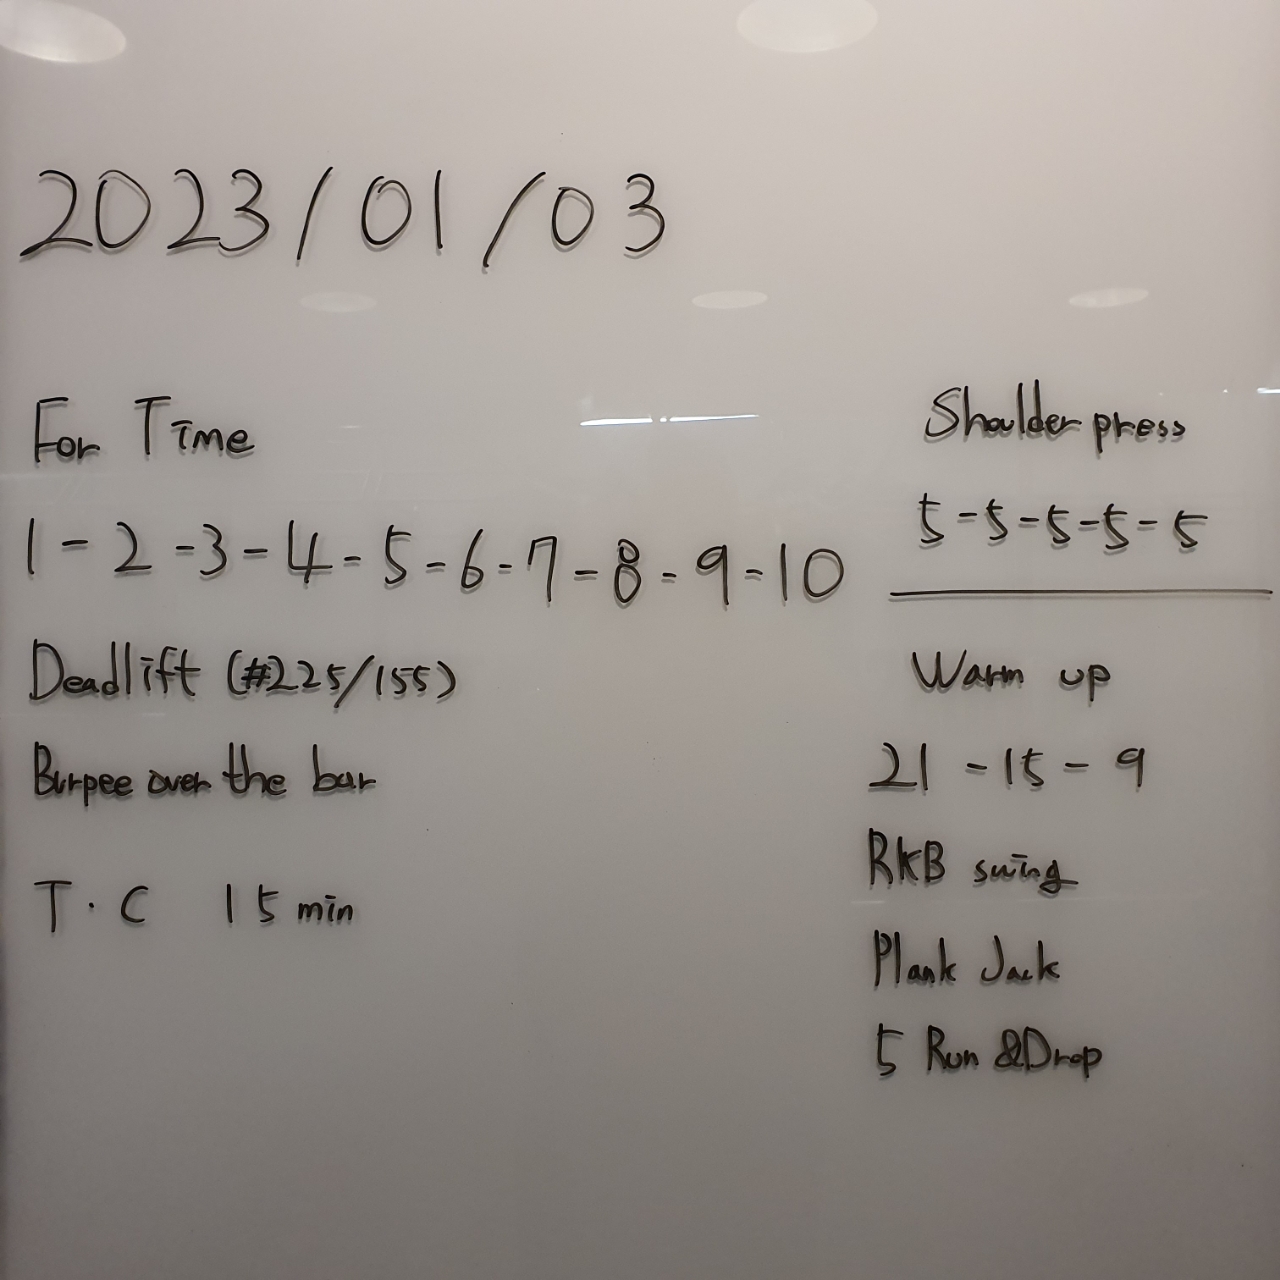 2023/01/03
For Time
1-2-3-4-5-6-7-8-9-10
Deadlift (#225/155)
Burpee over the bar
T.C 15 min
Shoulder press
5-5-5-5-5
Warm up
21-15-9
RKB swing
Plank Jack
5 Run &Drop